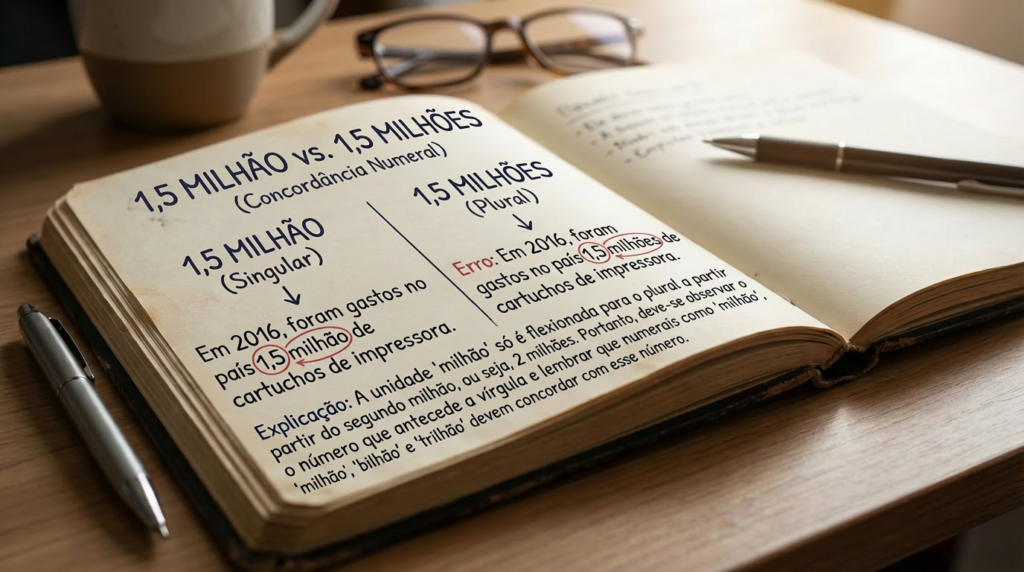 1,5 MILHÃO vs. 1,5 MILHÕES
(Concordância Numeral)
1,5 MILHÃO
(Singular)
Em 2016, foram gastos no
país 1,5 milhão de
cartuchos de impressora.
1,5 MILHÕES
(Plural)
Erro: Em 2016, foram
gastos no país 1,5 milhões de
cartuchos de impressora.
Explicação: A unidade 'milhão' só é flexionada para o plural a partir
partir do segundo milhão, ou seja, 2 milhões. Portanto, deve-se observar o
o número que antecede a vírgula e lembrar que numerais como 'milhão',
'milhão', 'bilhão' e 'trilhão' devem concordar com esse número.